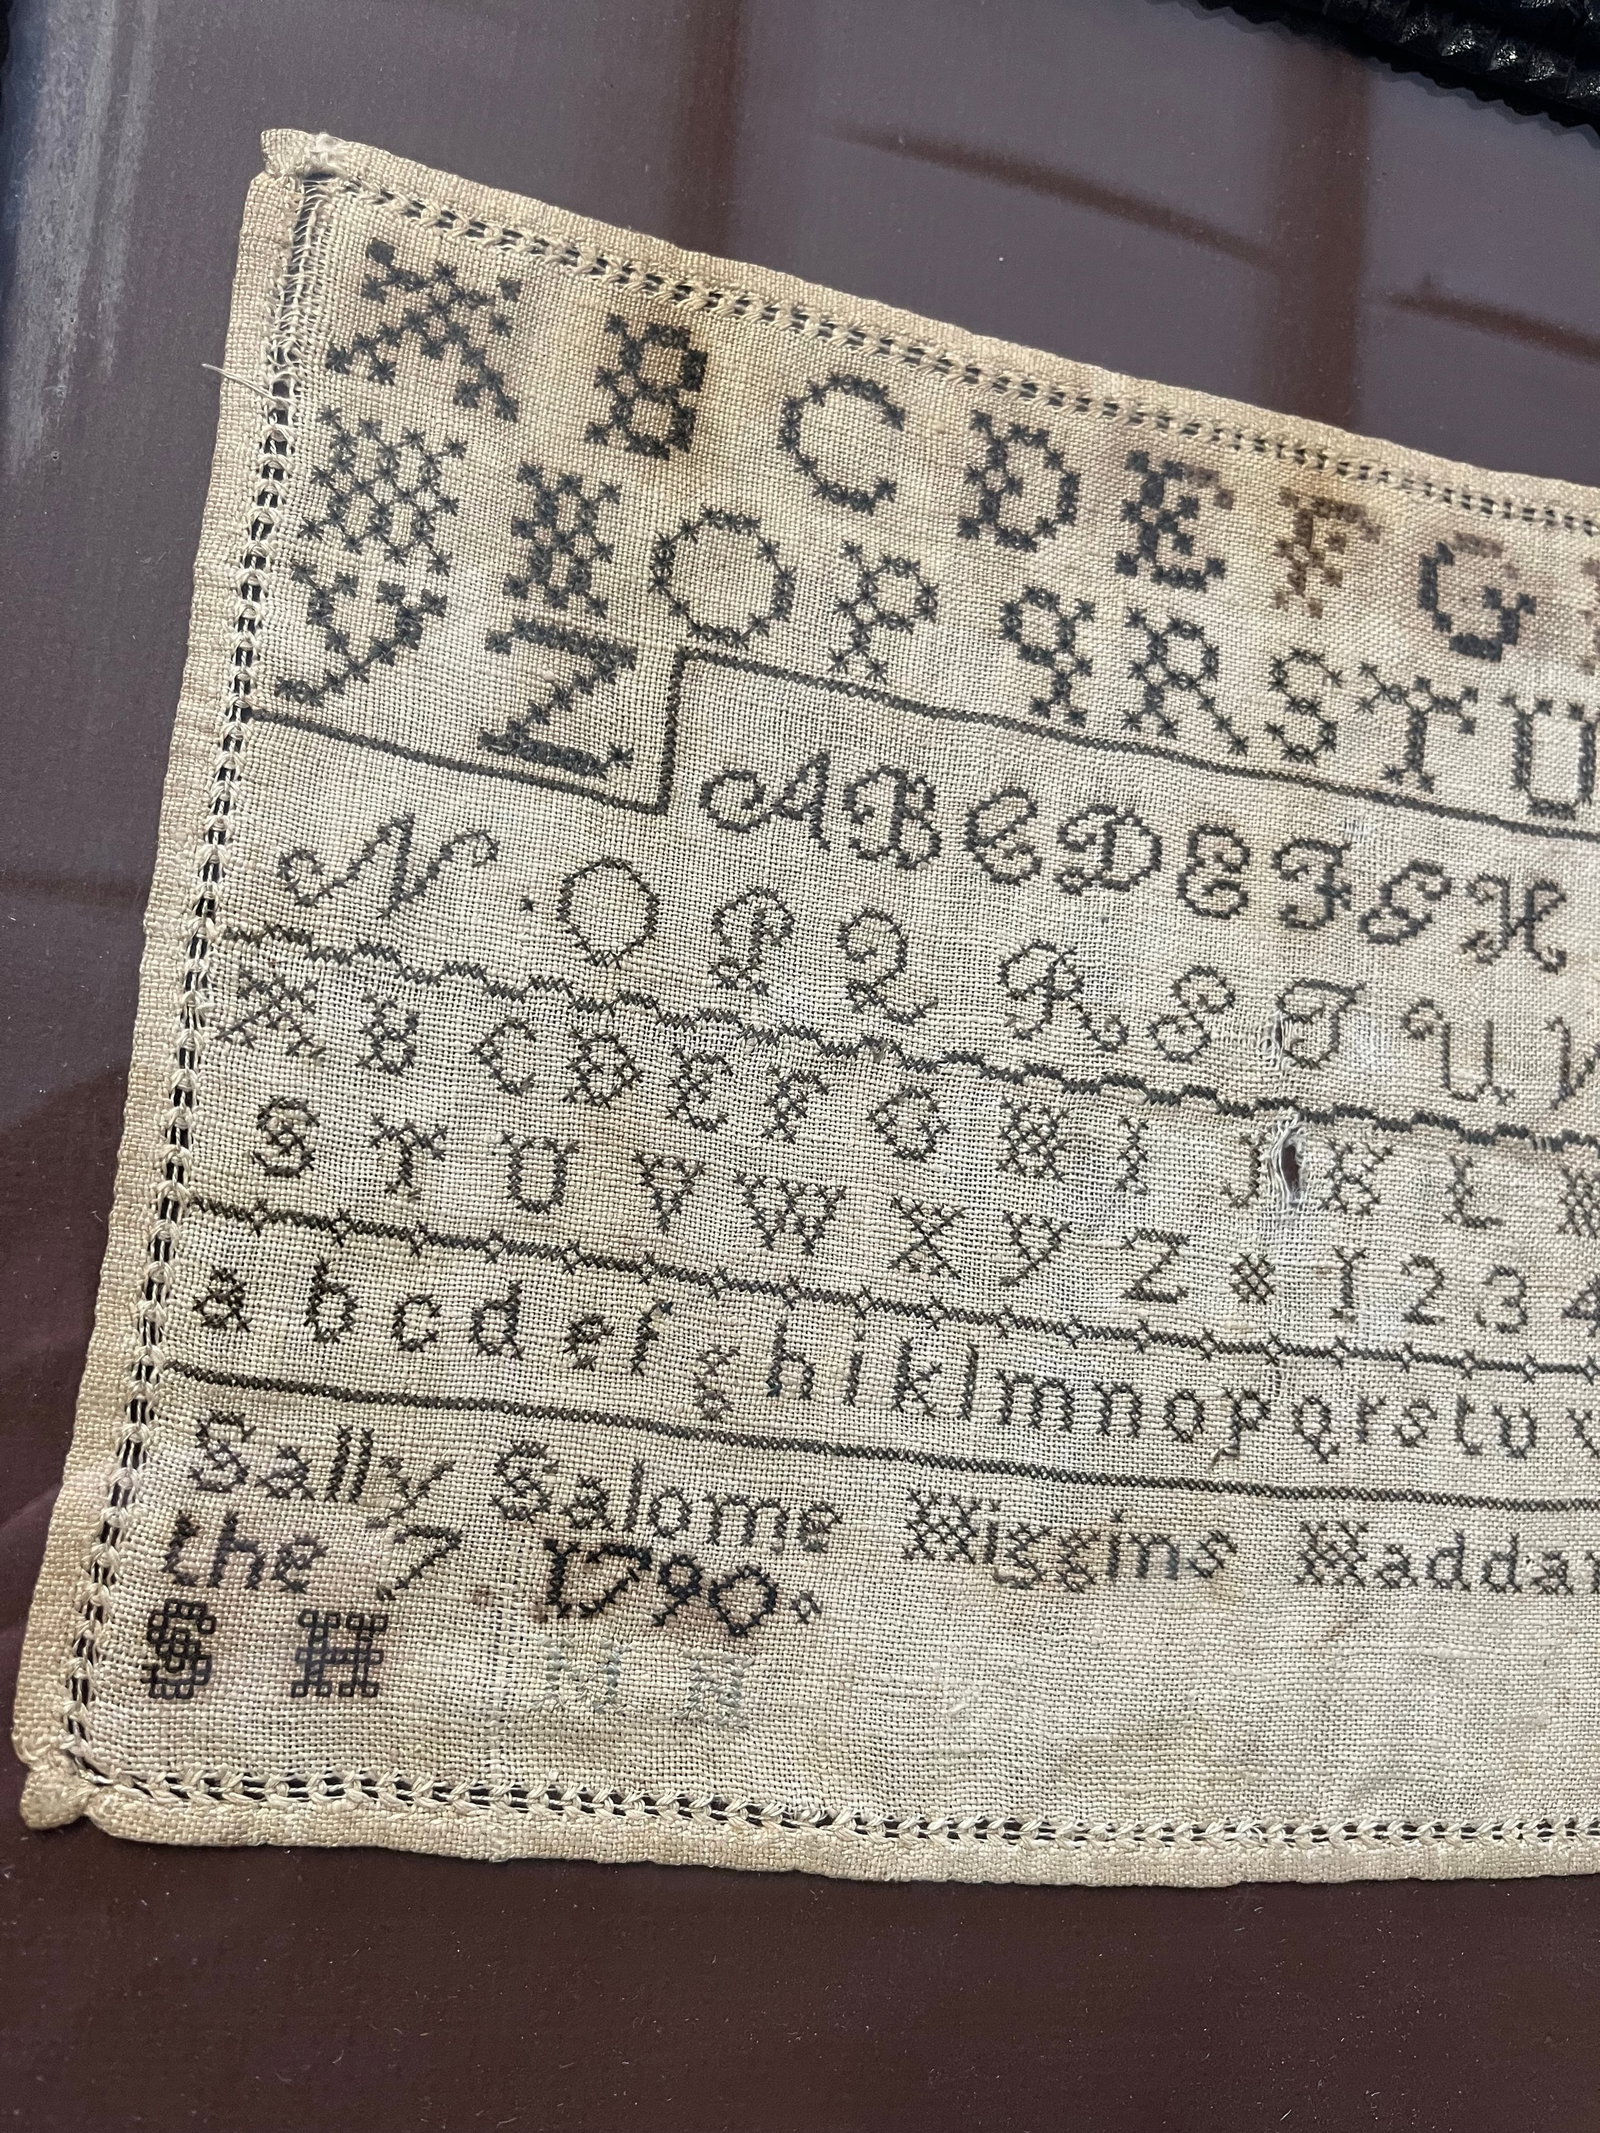 A B C D E F G
M N O P Q R S T U
Y Z
A B C D E F G H
N O P Q R S T U V
A B C D E F G H I J K L M
S T U V W X Y Z & 1 2 3 4
a b c d e f g h i k l m n o p q r s t u v
Sally Salome Higgins Haddam
the 7 1790
S H N N